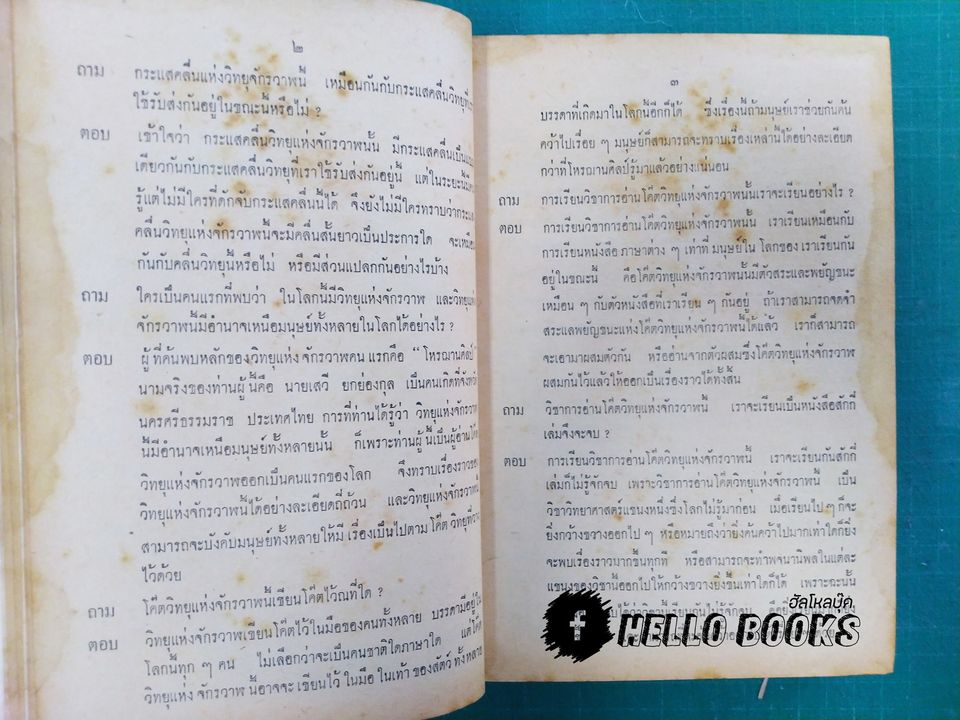 ๒
ถาม กระแสคลื่นแห่งวิทยุจักรวาพนี้ เหมือนกันกับกระแสคลื่นวิทยุที่เรา
ใช้รับส่งกันอยู่ในขณะนี้หรือไม่ ?
ตอบ เข้าใจว่า กระแสคลื่นวิทยุแห่งจักรวาพนั้น มีกระแสคลื่นเป็น
เดียวกันกับกระแสคลื่นวิทยุที่เราใช้รับส่งกันอยู่นี้ แต่ในระยะนี้
รู้แต่ไม่มีใครที่ดักจับกระแสคลื่นนี้ได้ จึงยังไม่มีใครทราบว่ากระแส
คลื่นวิทยุแห่งจักรวาพนี้จะมีคลื่นสั้นยาวเป็นประการใด จะเหมือน
กันกับคลื่นวิทยุนี้หรือไม่ หรือมีส่วนแปลกกันอย่างไรบ้าง
ถาม ใครเป็นคนแรกที่พบว่า ในโลกนี้มีวิทยุแห่งจักรวาพ และวิทยุแห่ง
จักรวาพนี้มีอำนาจเหนือมนุษย์ทั้งหลายในโลกได้อย่างไร ?
ตอบ ผู้ที่ค้นพบหลักของวิทยุแห่งจักรวาพคนแรกคือ “โหรญานศิลป์
นามจริงของท่านผู้นี้คือ นายเสวี ยกย่องกุล เป็นคนเกิดที่จังหวัด
นครศรีธรรมราช ประเทศไทย การที่ท่านได้รู้ว่า วิทยุแห่งจักรวาพ
นี้มีอำนาจเหนือมนุษย์ทั้งหลายนั้น ก็เพราะท่านผู้นี้เป็นผู้อ่านโค๊ต
วิทยุแห่งจักรวาพออกเป็นคนแรกของโลก จึงทราบเรื่องราวของ
วิทยุแห่งจักรวาพนี้ได้อย่างละเอียดถี่ถ้วน และวิทยุแห่งจักรวาพนี้
สามารถจะบังคับมนุษย์ทั้งหลายให้มีเรื่องเป็นไปตามโค๊ตวิทยุที่
ไว้ด้วย
ถาม โค๊ตวิทยุแห่งจักรวาพนี้เขียนโค๊ตไว้ณที่ใด ?
ตอบ วิทยุแห่งจักรวาพเขียนโค๊ตไว้ในมือของคนทั้งหลาย บรรดามีอยู่ใน
โลกนี้ทุก ๆ คน ไม่เลือกว่าจะเป็นคนชาติใดภาษาใด แต่โค๊ต
วิทยุแห่งจักรวาพนี้อาจจะเขียนไว้ในมือในเท้าของสัตว์ทั้งหลาย
๓
บรรดาที่เกิดมาในโลกนี้อีกก็ได้ ซึ่งเรื่องนี้ถ้ามนุษย์เราช่วยกันค้น
คว้าไปเรื่อย ๆ มนุษย์ก็สามารถจะทราบเรื่องเหล่านี้ได้อย่างละเอียด
กว่าที่โหรญานศิลป์รู้มาแล้วอย่างแน่นอน
ถาม การเรียนวิชาการอ่านโค๊ตวิทยุแห่งจักรวาพนั้นเราจะเรียนอย่างไร ?
ตอบ การเรียนวิชาการอ่านโค๊ตวิทยุแห่งจักรวาพนั้น เราเรียนเหมือนกับ
การเรียนหนังสือภาษาต่าง ๆ เท่าที่มนุษย์ในโลกของเราเรียนกัน
อยู่ในขณะนี้ คือโค๊ตวิทยุแห่งจักรวาพนั้นมีตัวสระและพยัญชนะ
เหมือน ๆ กับตัวหนังสือที่เราเรียน ๆ กันอยู่ ถ้าเราสามารถจดจำ
สระแลพยัญชนะแห่งโค๊ตวิทยุแห่งจักรวาพนี้ได้แล้ว เราก็สามารถ
จะเอามาผสมตัวกัน หรืออ่านจากตัวผสมซึ่งโค๊ตวิทยุแห่งจักรวาพ
ผสมกันไว้แล้วให้ออกเป็นเรื่องราวได้ทั้งสิ้น
ถาม วิชาการอ่านโค๊ตวิทยุแห่งจักรวาพนี้ เราจะเรียนเป็นหนังสือสักกี่
เล่มจึงจะจบ ?
ตอบ การเรียนวิชาการอ่านโค๊ตวิทยุแห่งจักรวาพนี้ เราจะเรียนกันสักกี่
เล่มก็ไม่รู้จักจบ เพราะวิชาการอ่านโค๊ตวิทยุแห่งจักรวาพนี้ เป็น
วิชาวิทยาศาสตร์แขนงหนึ่งซึ่งโลกไม่รู้มาก่อน เมื่อเรียนไป ๆ ก็จะ
ยิ่งกว้างขวางออกไป ๆ หรือหมายถึงว่ายิ่งค้นคว้าไปมากเท่าใดก็ยิ่ง
จะพบเรื่องราวมากขึ้นทุกที หรือสามารถจะทำพจนานิพลในแต่ละ
แขนงของวิชานี้ออกไปให้กว้างขวางยิ่งขึ้นเท่าใดก็ได้ เพราะฉะนั้น
ฮัลโหลบุ๊ค
f HELLO BOOKS